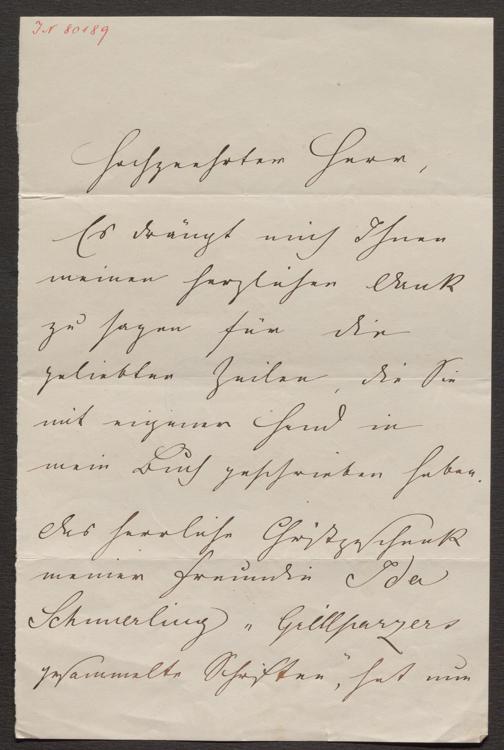 IN 80189
Hochgeehrter Herr,
Es drängt mich Ihnen
meinen herzlichen Dank
zu sagen für die
geliebten Zeilen, die Sie
mit eigener Hand in
mein Buch geschrieben haben.
Das herrliche Christgeschenk
meiner Freundin Ida
Schmerling „Grillparzers
gesammelte Schriften", hat nun